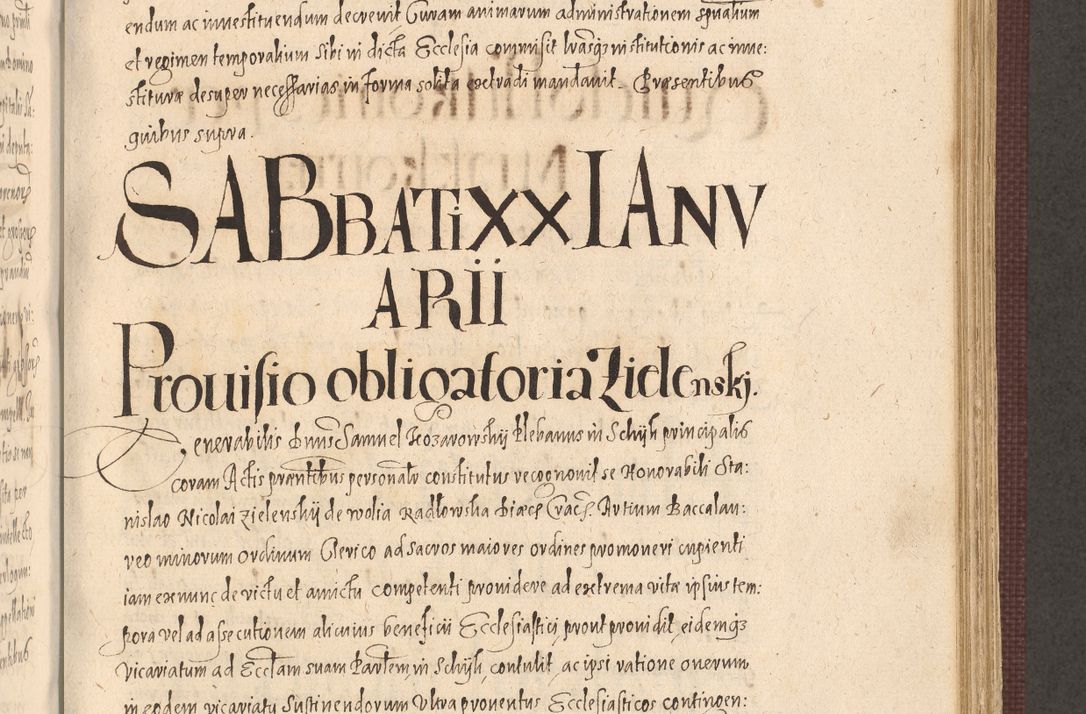 endum ac investituendum decrevit Curam animarum administrationem spualium
et regimen temporalium sibi in dicta Ecclesia commisit lrasqz institutionis ac inue:
stiturę desuper necessarias in forma solita extradi mandauit. Pręsentibus
quibus supra.
SABBATi XX IANV
ARii
Prouisio obligatoria Zielenskj.
Venerabilis Dnus Samuel Kozarowskij Plebanus in Schijk principalis
coram Actis præntibus personalr constitutus recognovit se Honorabili Sta:
nislao Nicolai Zielenskij de wolia Radłowska Diæces Cracs Artium Baccalau:
reo minorum ordinum Clerico ad sacros maiores ordines promoneri cupienti
iam ex nunc de victu et amictu competenti providere ad extrema vitæ ipsius tem:
pora vel ad assecutionem alicuius beneficii Ecclesiastici prout providit, eidemqz
vicariatum ad Ecctam suam Parlem, in Schijk, contulit, ac ipsi ratione onerum
in eodem vicariatu sustinendorum Ultra proventus Ecclesiasticos contingen: